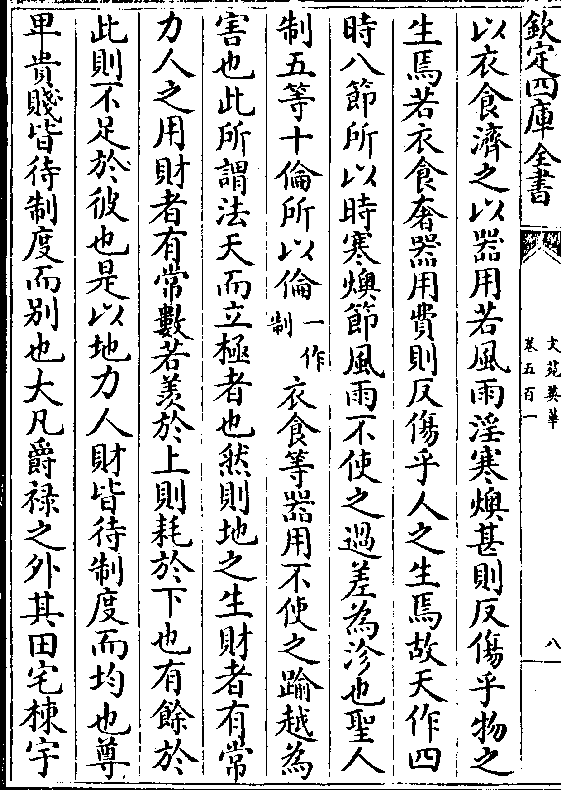 欽定四庫全書
文苑英華
卷五百一
八
以衣食濟之以器用若風雨淫寒燠甚則反傷乎物之
生焉若衣食奢器用費則反傷乎人之生焉故天作四
時八節所以時寒燠節風雨不使之過差為沴也聖人
制五等十倫所以倫一作制衣食等器用不使之踰越為
害也此所謂法天而立極者也然則地之生財者有常
力人之用財者有常數若羨於上則耗於下也有餘於
此則不足於彼也是以地力人財皆待制度而均也尊
卑貴賤皆待制度而别也大凡爵禄之外其田宅棟宇